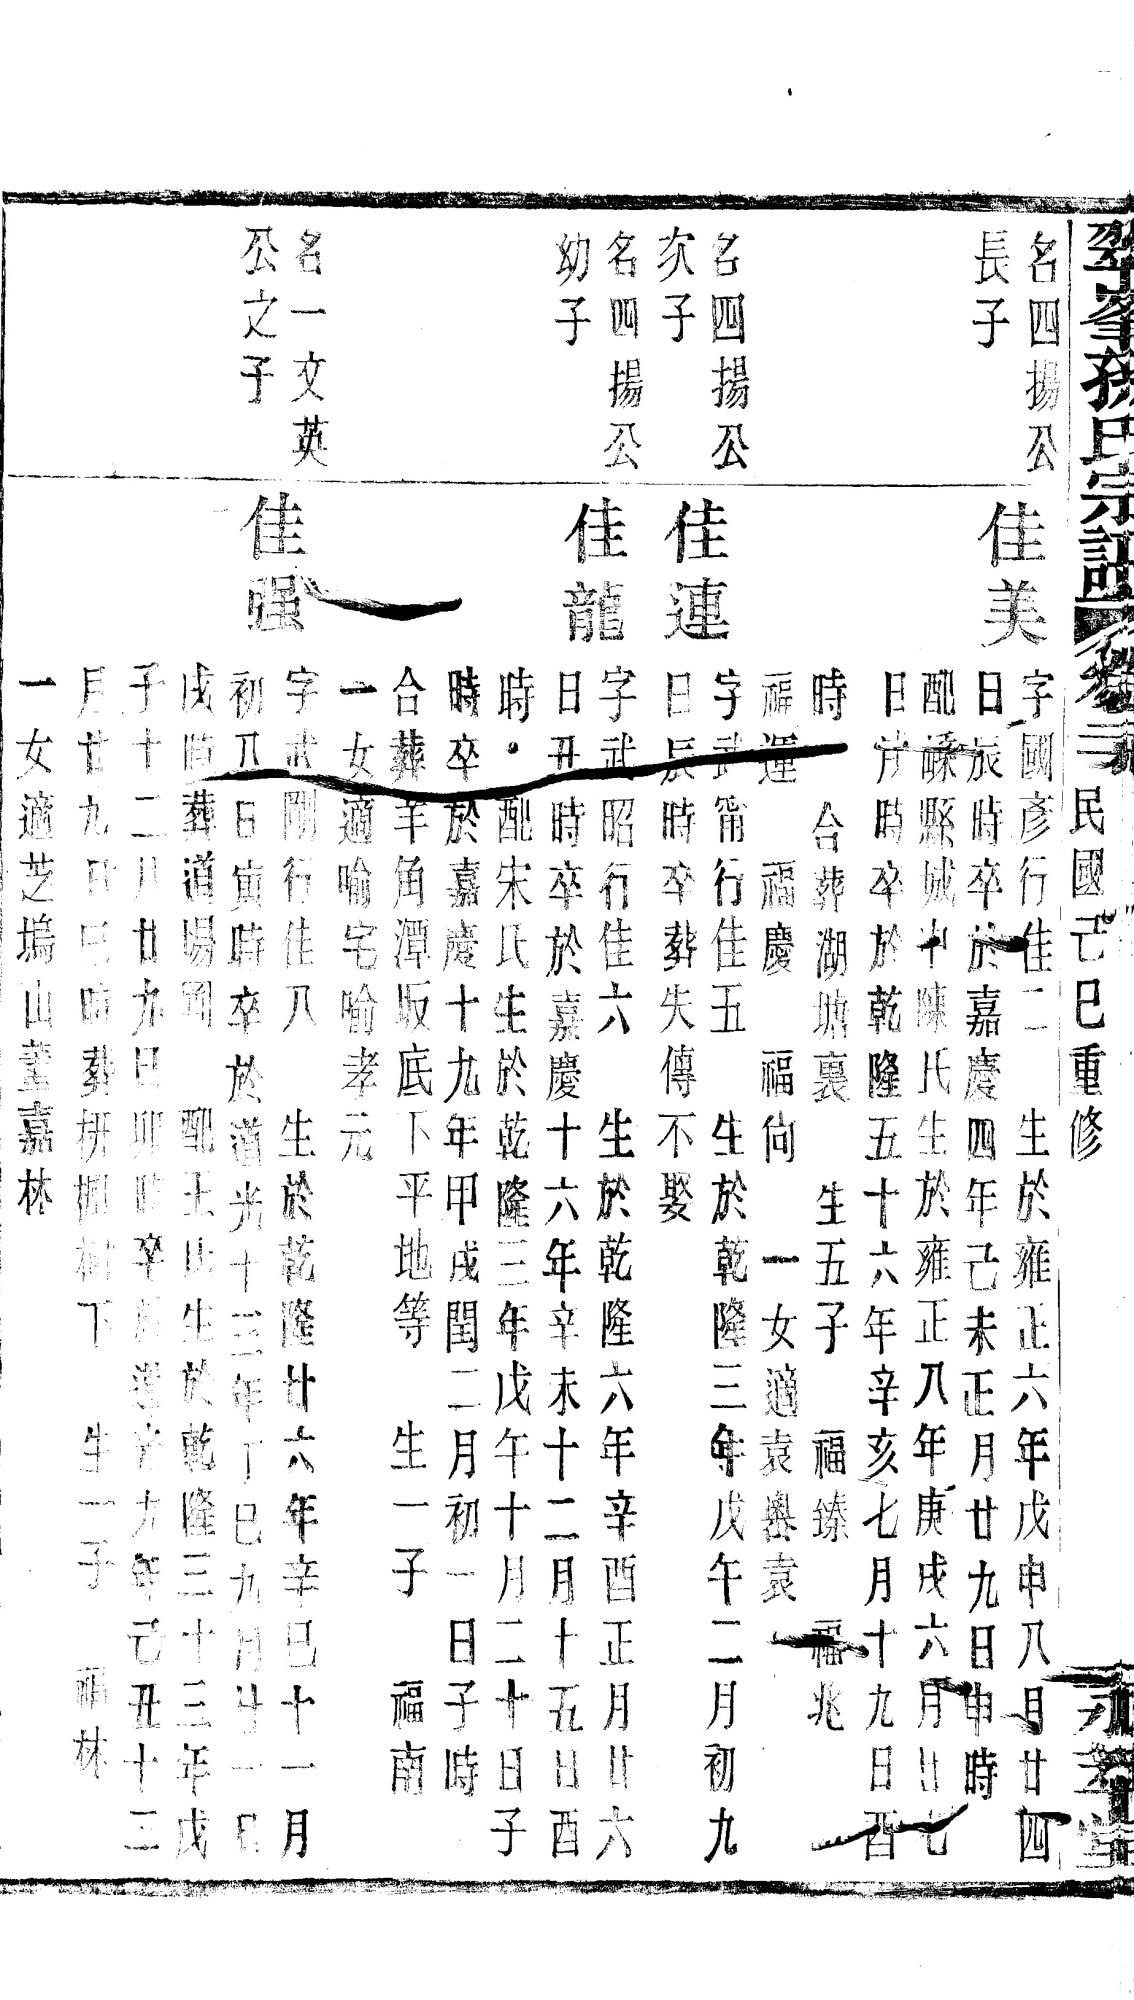 翠峯孫氏宗譜 卷二 民國己巳重修
名四揚公
長子
佳美
字國彥行佳二 生於雍正六年戊申八月廿四
日辰時卒於嘉慶四年己未正月廿九日申時
配嵊縣城中陳氏生於雍正八年庚戌六月廿七
日 時卒於乾隆五十六年辛亥七月十九日酉
時 合葬湖塘裏 生五子 福臻 福兆
福運 福慶 福尙 一女適袁嶴袁
名四揚公
次子
佳連
字武甯行佳五 生於乾隆三年戊午二月初九
日辰時卒葬失傳不娶
名四揚公
幼子
佳龍
字武昭行佳六 生於乾隆六年辛酉正月廿六
日丑時卒於嘉慶十六年辛未十二月十五日酉
時 配宋氏生於乾隆三年戊午十月二十日子
時卒於嘉慶十九年甲戌閏二月初一日子時
合葬羊角潭坂底下平地等 生一子 福南
一女適喻宅喻孝元
名一文英
公之子
佳强
字武剛行佳八 生於乾隆廿六年辛巳十一月
初八日寅時卒於道光十三年 巳九月廿一日
戌時葬道塲 配 氏生於乾隆三十三年戊
子十二月廿九日卯時卒於道光九年己丑十二
月廿九日巳時葬 樹下 生一子 福林
一女適芝塢山董嘉林